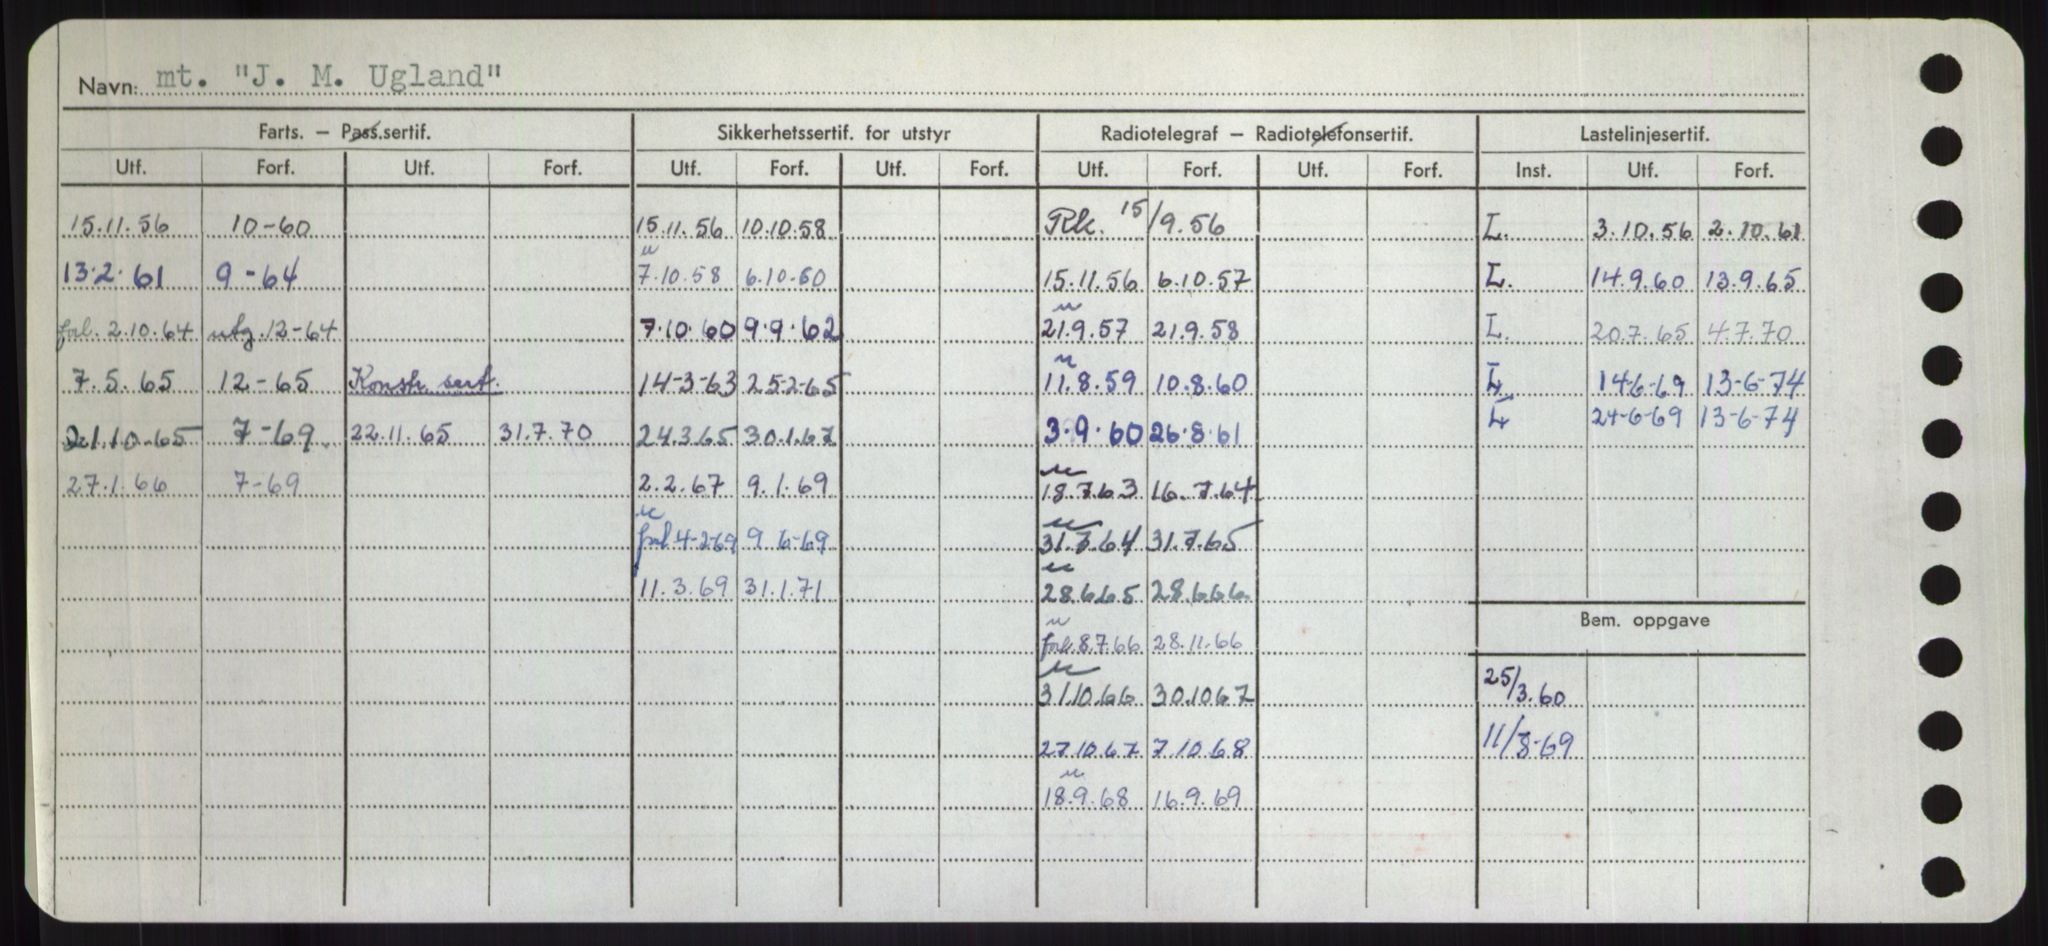 Navn: mt. "J. M. Ugland"
Farts. — Pass.sertif. Sikkerhetssertif. for utstyr Radiotelegraf — Radiotelefonsertif. Lastelinjesertif.
Utf. Forf. Utf. Forf. Utf. Forf. Utf. Forf. Utf. Forf. Utf. Forf. Inst. Utf. Forf.
15.11.56 10-60 15.11.56 10.10.58 Rk. 15/9.56 L. 3.10.56 2.10.61
13.2.61 9-64 u 7.10.58 6.10.60 15.11.56 6.10.57 L. 14.9.60 13.9.65
forl. 2.10.64 utg. 12-64 7.10.60 9.9.62 u 21.9.57 21.9.58 L. 20.7.65 4.7.70
7.5.65 12-65 Konstr. sert. 14-3-63 25-2-65 u 11.8.59 10.8.60 L. 14-6-69 13-6-74
L 24-6-69 13-6-74
21.10-65 7-69. 22.11.65 31.7.70 24.3.65 30.1.67 3.9.60 26.8.61
27.1.66 7-69 2.2.67 9.1.69 u 18.7.63 16.7.64
u forl 4-2-69 9.6-69 u 31.7.64 31.7.65
11.3.69 31.1.71 u 28.6.65 28.6.66
Bem. oppgave
u forl. 8.7.66 28.11.66
u 31.10.66 30.10.67 25/3.60
27.10.67 7.10.68 11/8-69
u 18.9.68 16.9.69